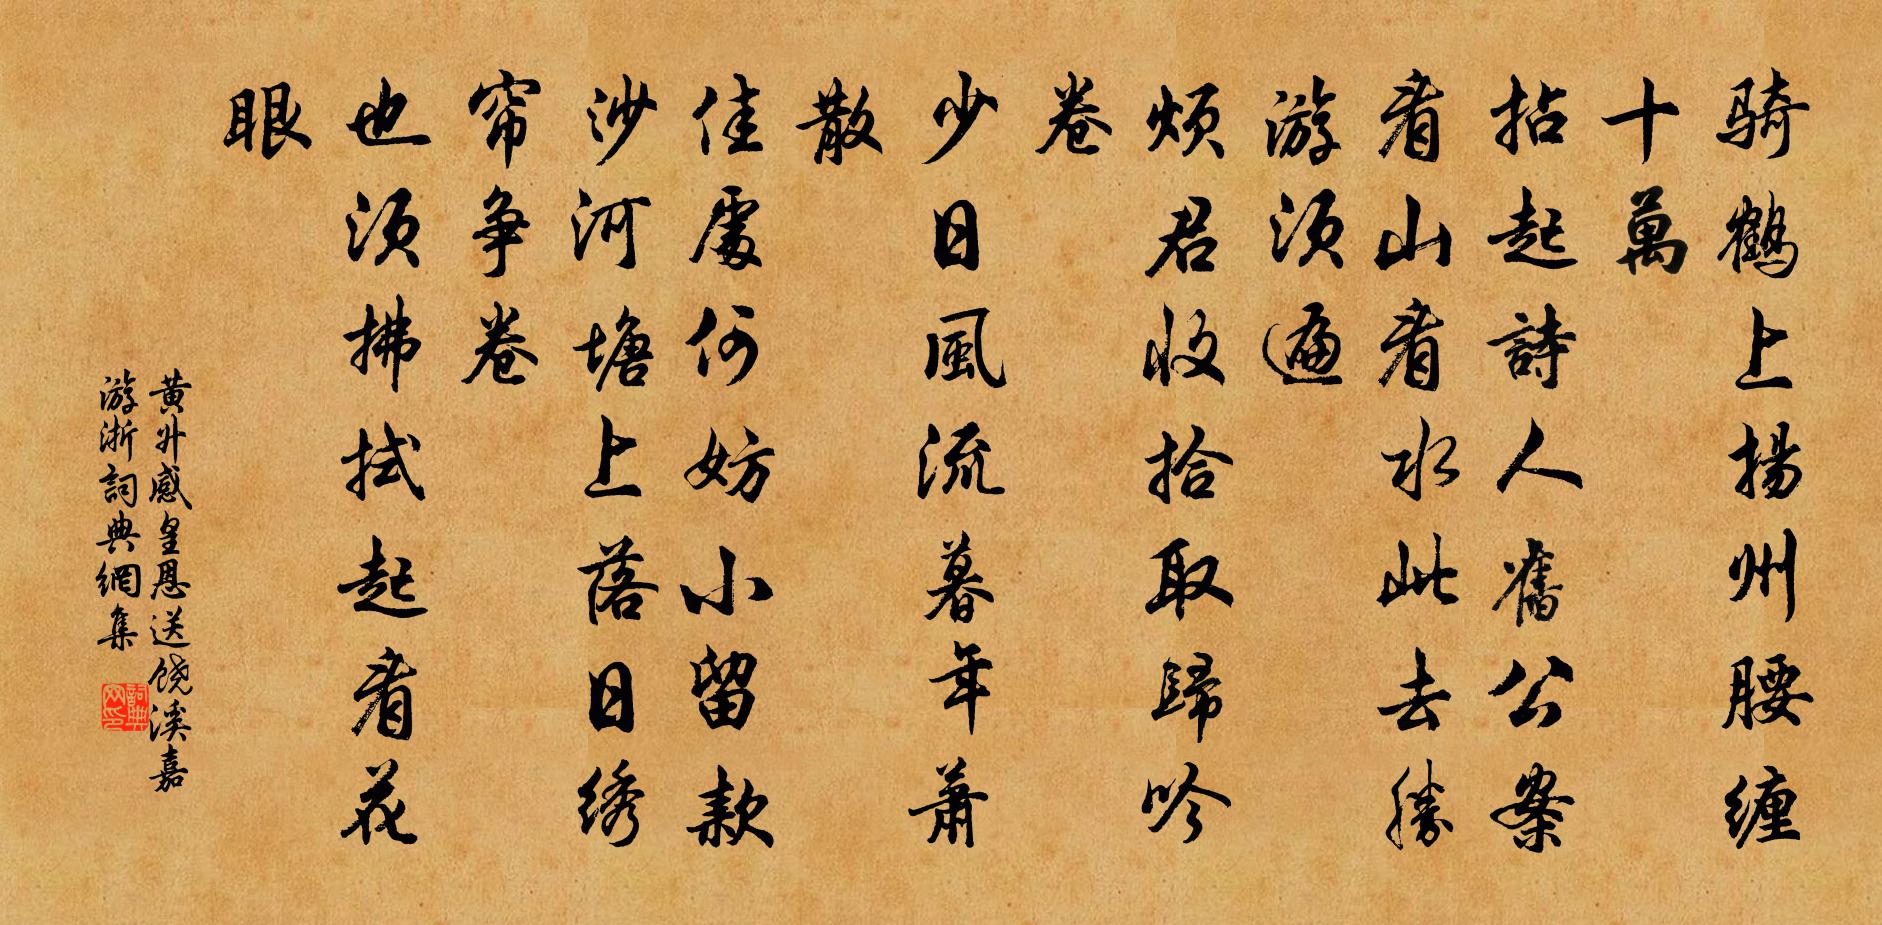 骑鹤上揚州腰缠
十萬
拈起詩人舊公案
看山看水此去勝
游须遍
烦君收拾取歸吟
卷
少日風流暮年萧
散
佳處何妨小留款
沙河塘上落日绣
帘争卷
也须拂拭起看花
眼
黄升感皇恩送饶溪嘉
游浙詞典網集
詞典
网印